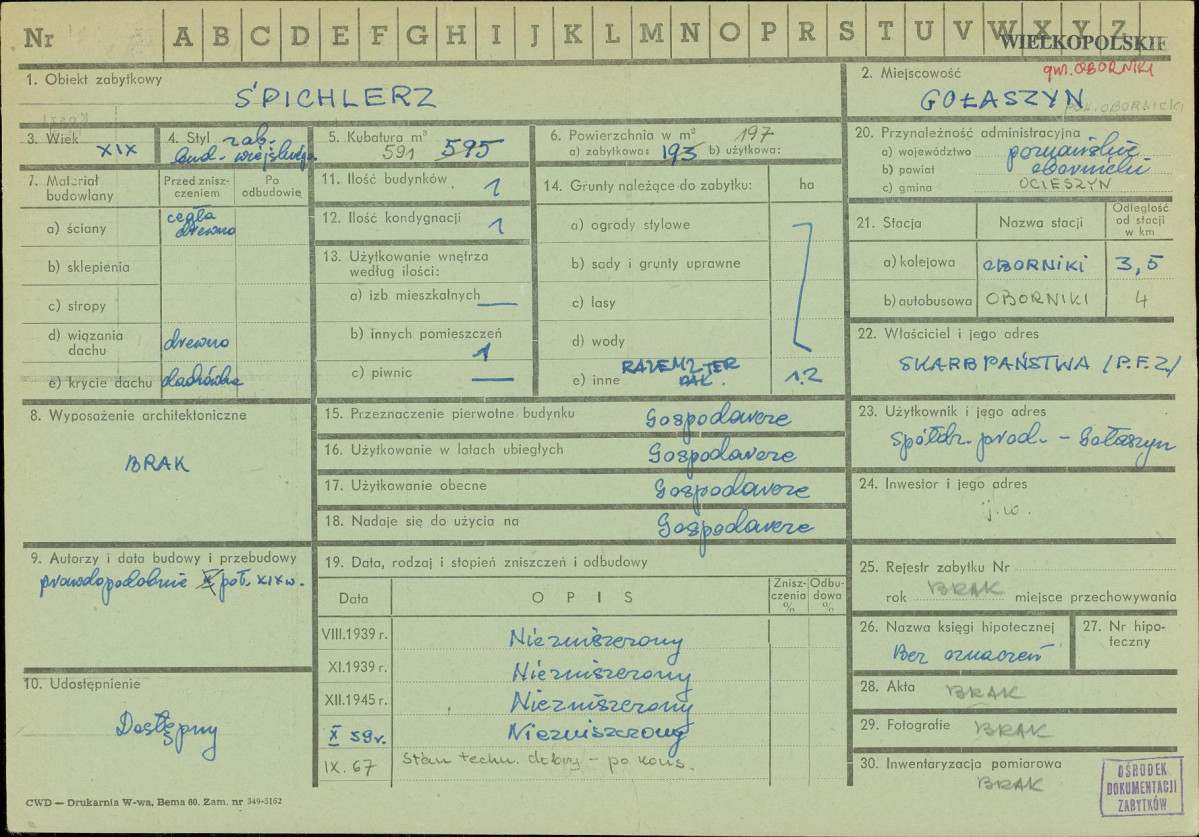 Nr A B C D E F G H I J K L M N O P R S T U V W X Y Z
WIELKOPOLSKIE
gm. OBORNIKI
1. Obiekt zabytkowy
ŚPICHLERZ
2. Miejscowość
GOŁASZYN
pow. OBORNICKI
3. Wiek
XIX
4. Styl zab.
bud. wiejskiego
5. Kubatura m³
591 595
6. Powierzchnia w m² 197
a) zabytkowa: 193 b) użytkowa:
20. Przynależność administracyjna
a) województwo poznańskie
b) powiat obornicki
c) gmina OCIESZYN
7. Materiał budowlany
Przed zniszczeniem
Po odbudowie
a) ściany cegła drewno
b) sklepienia
c) stropy
d) wiązania dachu drewno
e) krycie dachu dachówka
11. Ilość budynków 1
12. Ilość kondygnacji 1
13. Użytkowanie wnętrza
według ilości:
a) izb mieszkalnych —
b) innych pomieszczeń
1
c) piwnic —
14. Grunty należące do zabytku: ha
a) ogrody stylowe
b) sady i grunty uprawne
c) lasy
d) wody
e) inne RAZEM Z TER. PAŁ. 1.2
21. Stacja Nazwa stacji Odległość od stacji w km
a) kolejowa OBORNIKI 3,5
b) autobusowa OBORNIKI 4
22. Właściciel i jego adres
SKARB PAŃSTWA (P.F.Z)
8. Wyposażenie architektoniczne
BRAK
15. Przeznaczenie pierwotne budynku Gospodarcze
16. Użytkowanie w latach ubiegłych Gospodarcze
17. Użytkowanie obecne Gospodarcze
18. Nadaje się do użycia na Gospodarcze
23. Użytkownik i jego adres
Spółdz. prod. - Gołaszyn
24. Inwestor i jego adres
j.w.
9. Autorzy i data budowy i przebudowy
prawdopodobnie poł. XIX w.
19. Data, rodzaj i stopień zniszczeń i odbudowy
Data OPIS Zniszczenia % Odbudowa %
VIII.1939 r. Niezniszczony
XI.1939 r. Niezniszczony
XII.1945 r. Niezniszczony
X 59 r. Niezniszczony
IX. 67 Stan techn. dobry - po kons.
25. Rejestr zabytku Nr
rok BRAK miejsce przechowywania
26. Nazwa księgi hipotecznej
Bez oznaczeń
27. Nr hipoteczny
10. Udostępnienie
Dostępny
28. Akta BRAK
29. Fotografie BRAK
30. Inwentaryzacja pomiarowa
BRAK
OŚRODEK
DOKUMENTACJI
ZABYTKÓW
CWD — Drukarnia W-wa, Bema 60. Zam. nr 349-3162